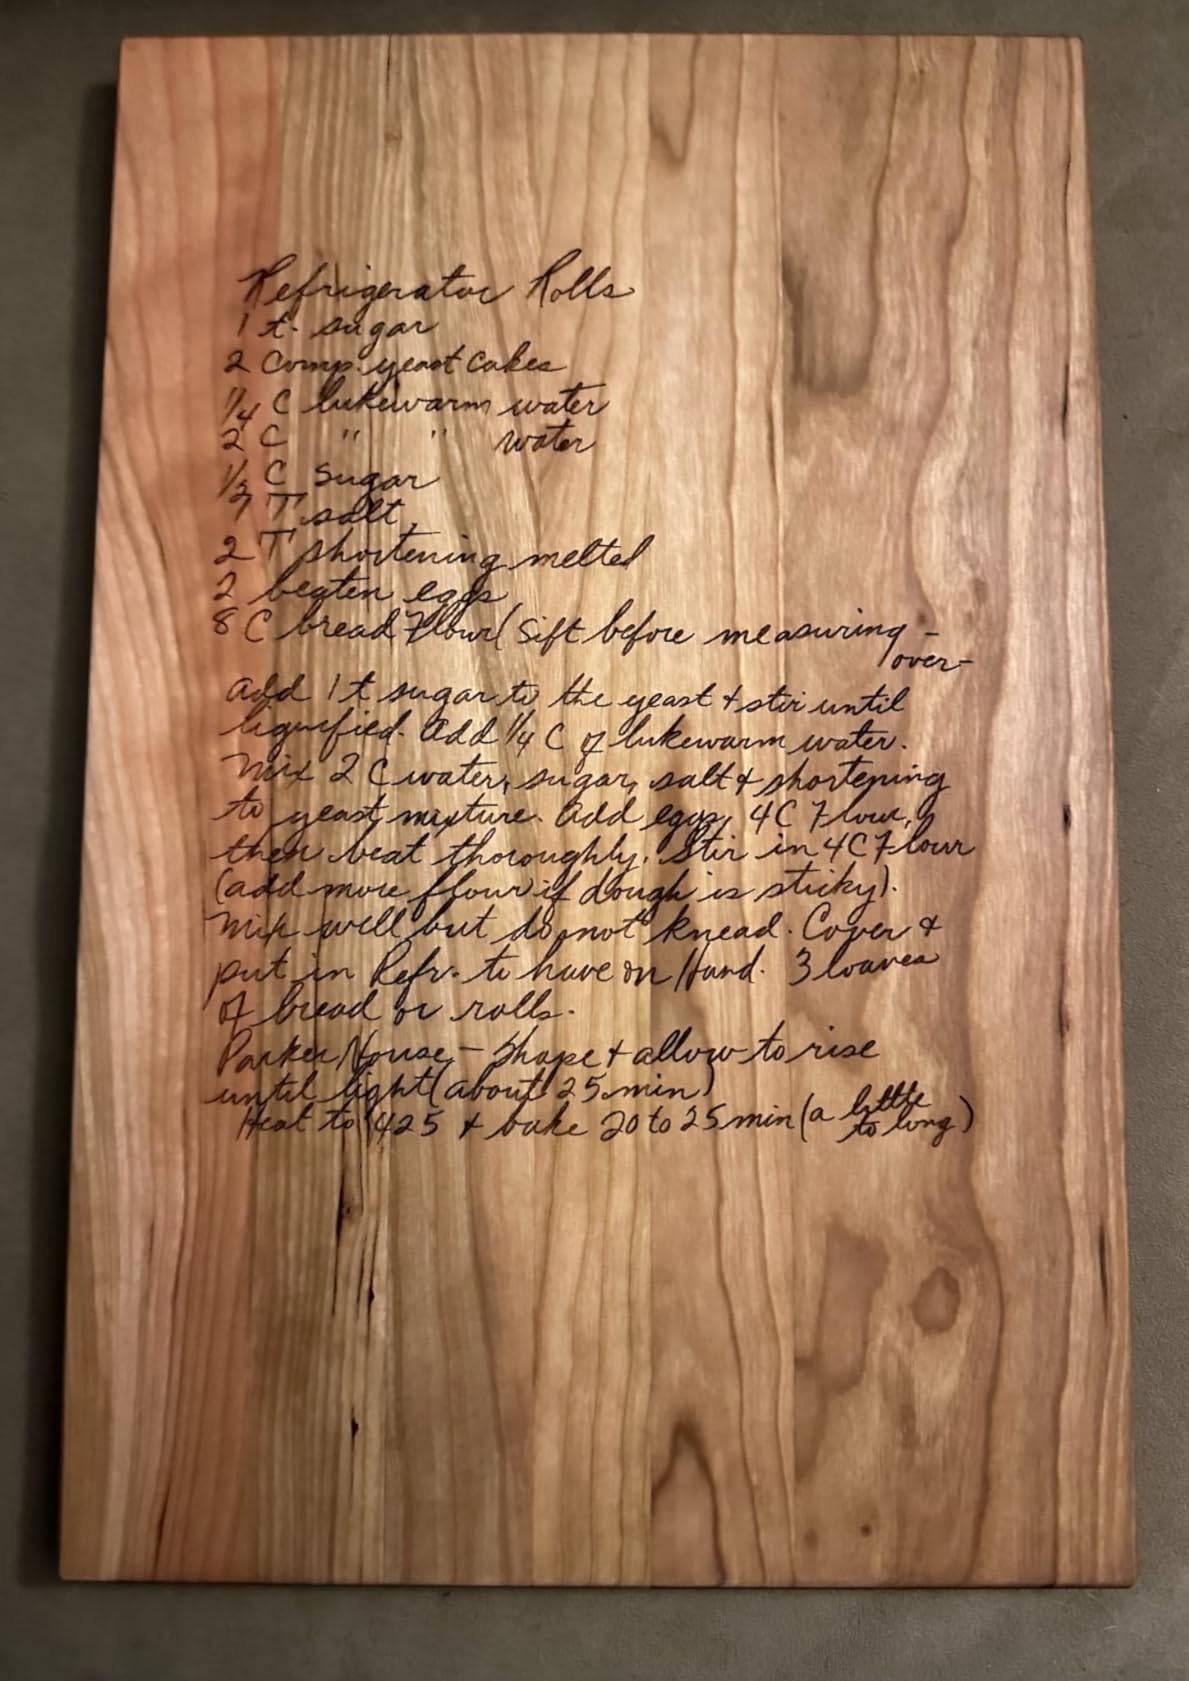 Refrigerator Rolls
1 t. sugar
2 Comp. yeast cakes
1/4 C lukewarm water
2 C " " water
1/2 C sugar
1 T. salt,
2 T shortening melted
2 beaten eggs
8 C bread Flour (Sift before measuring -
over-
add 1 t sugar to the yeast + stir until
liquified. Add 1/4 C of lukewarm water.
Mix 2 C water, sugar, salt + shortening
to yeast mixture. Add eggs, 4 C Flour,
then beat thoroughly. Stir in 4 C Flour
(add more flour if dough is sticky).
Mix well but do not knead. Cover +
put in Refr. to have on Hand. 3 loaves
of bread or rolls.
Parker House - Shape + allow to rise
until light (about 25 min)
Heat to 425 + bake 20 to 25 min (a little
to long)